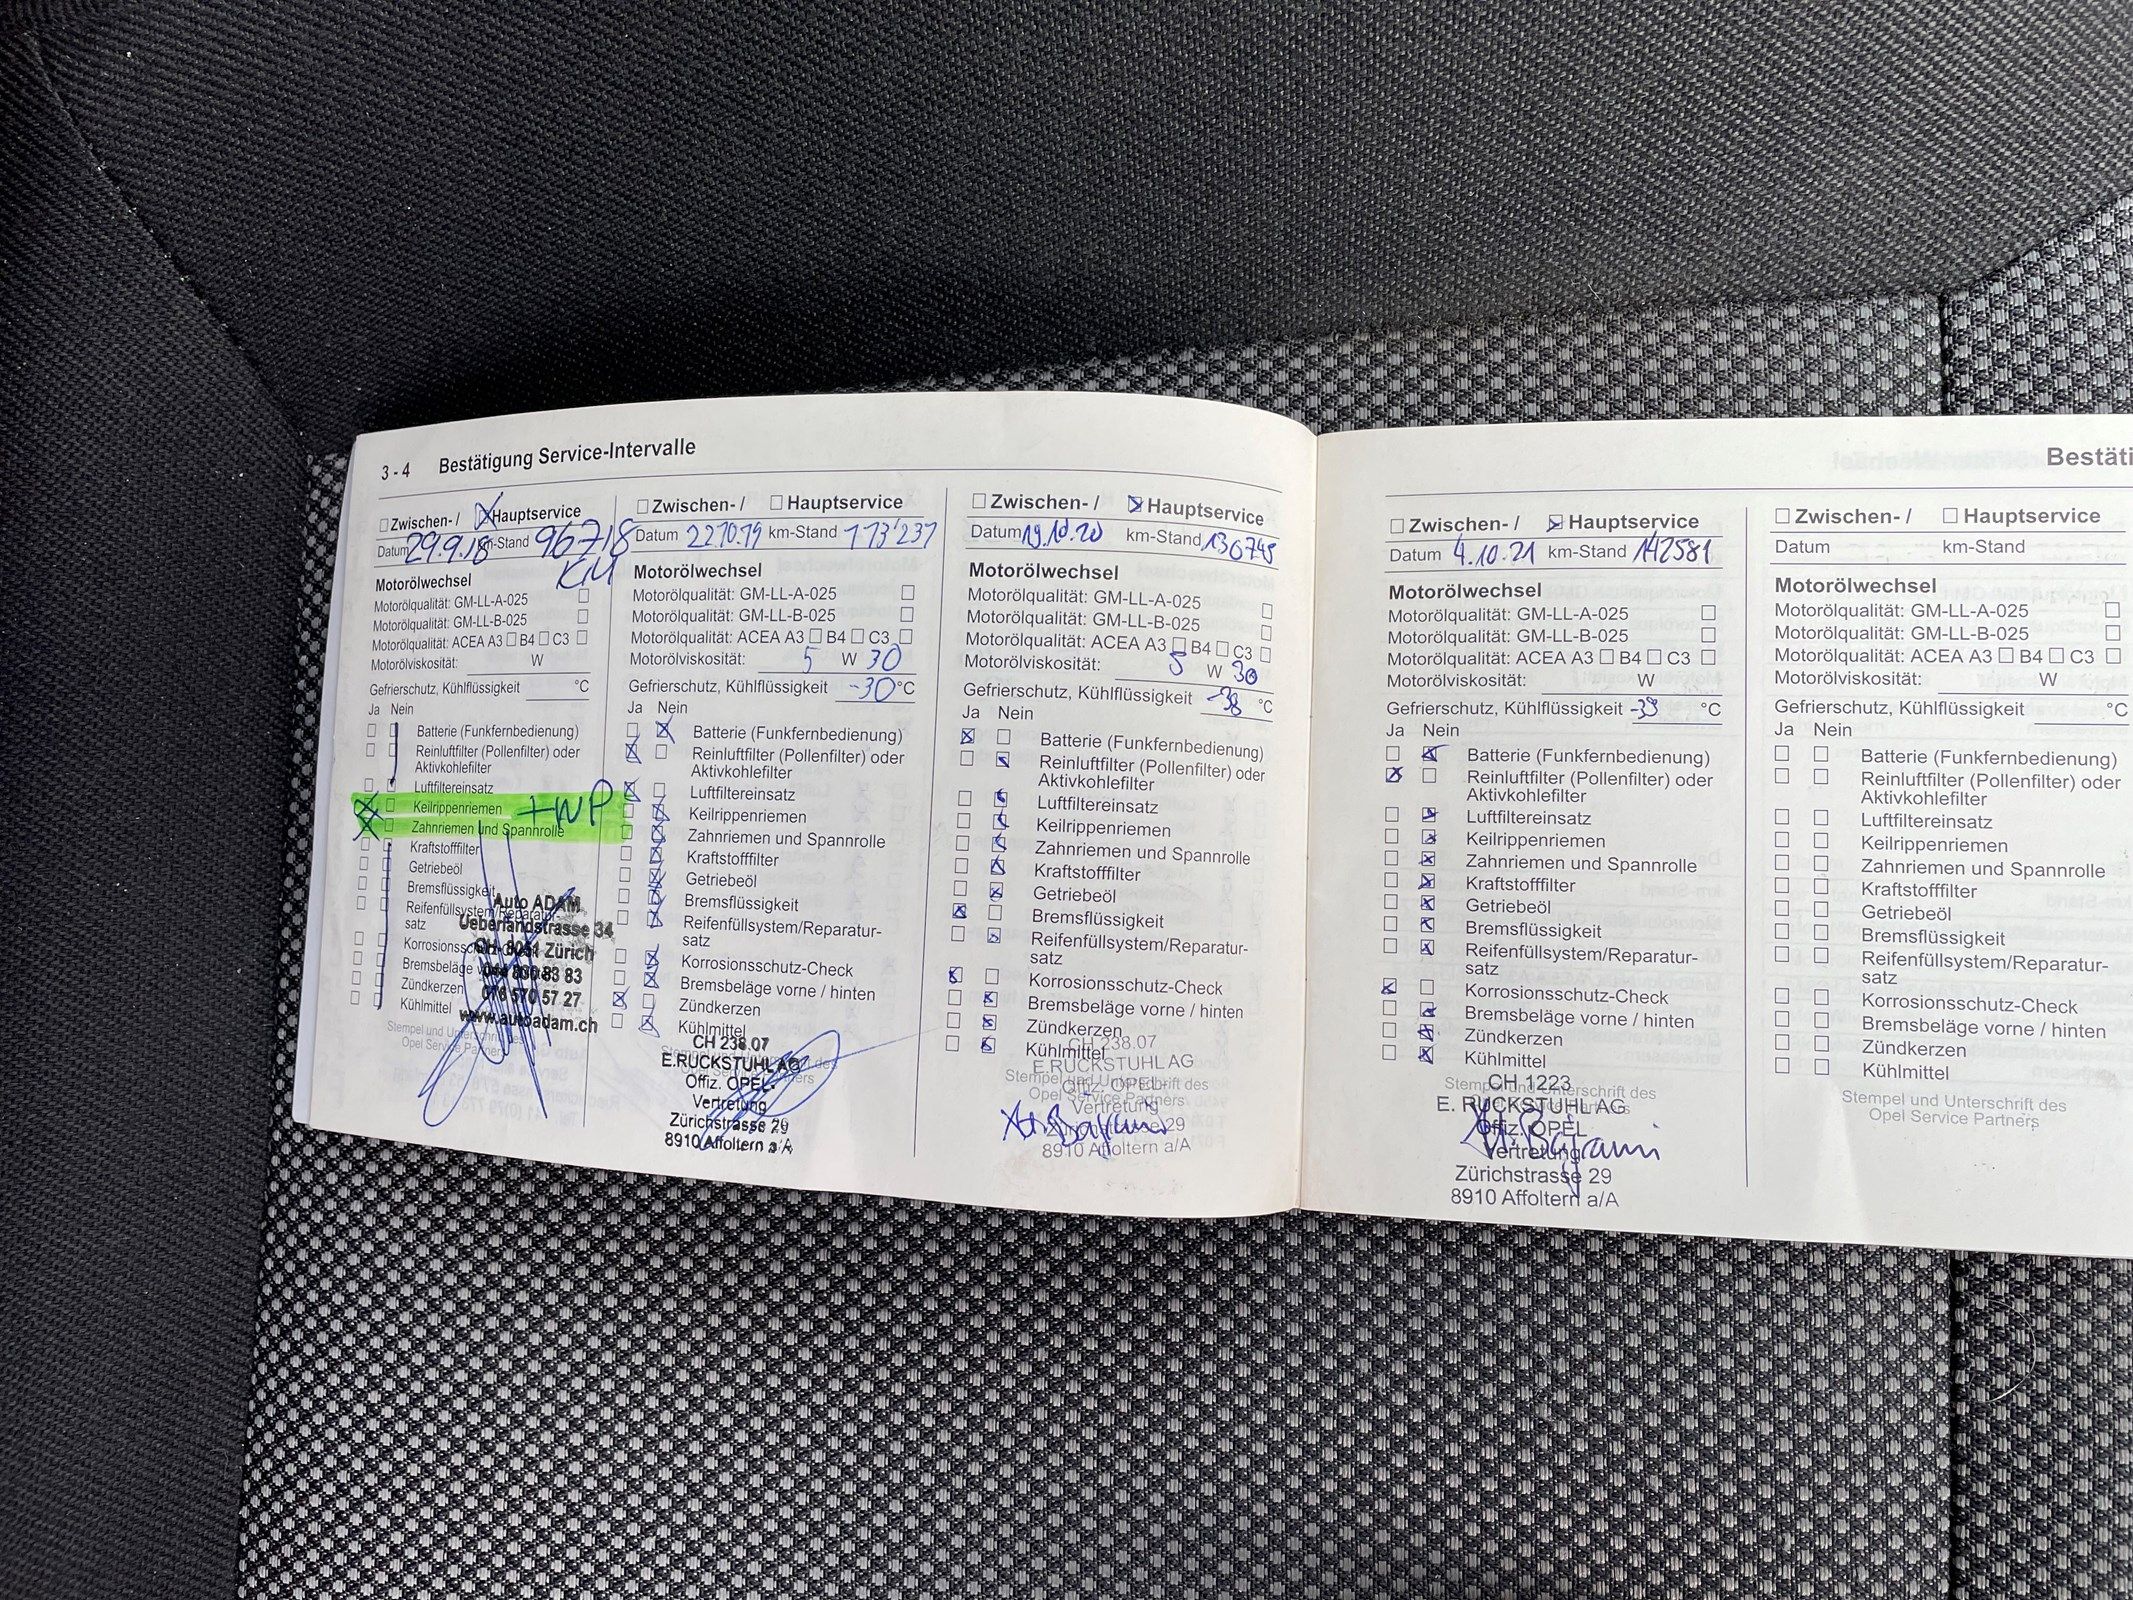 3 - 4 Bestätigung Service-Intervalle
Zwischen- / Hauptservice
Datum 29.9.18 km-Stand 96718
KM
Motorölwechsel
Motorölqualität: GM-LL-A-025
Motorölqualität: GM-LL-B-025
Motorölqualität: ACEA A3 B4 C3
Motorölviskosität: W
Gefrierschutz, Kühlflüssigkeit °C
Ja Nein
Batterie (Funkfernbedienung)
Reinluftfilter (Pollenfilter) oder
Aktivkohlefilter
Luftfiltereinsatz
Keilrippenriemen +WP
Zahnriemen und Spannrolle
Kraftstofffilter
Getriebeöl
Bremsflüssigkeit
Reifenfüllsystem/Reparatur-
satz
Bremsbeläge
Zündkerzen
Kühlmittel
Stempel und Unterschrift des
Opel Service Partners
Auto ADAM
Ueberlandstrasse 34
CH-8051 Zürich
044 830 83 83
076 570 57 27
www.autoadam.ch
Zwischen- / Hauptservice
Datum 22.10.19 km-Stand 113'237
Motorölwechsel
Motorölqualität: GM-LL-A-025
Motorölqualität: GM-LL-B-025
Motorölqualität: ACEA A3 B4 C3
Motorölviskosität: 5 W 30
Gefrierschutz, Kühlflüssigkeit -30 °C
Ja Nein
Batterie (Funkfernbedienung)
Reinluftfilter (Pollenfilter) oder
Aktivkohlefilter
Luftfiltereinsatz
Keilrippenriemen
Zahnriemen und Spannrolle
Kraftstofffilter
Getriebeöl
Bremsflüssigkeit
Reifenfüllsystem/Reparatur-
satz
Korrosionsschutz-Check
Bremsbeläge vorne / hinten
Zündkerzen
Kühlmittel
Stempel und Unterschrift des
Opel Service Partners
CH 238.07
E.RUCKSTUHL AG
Offiz. OPEL-
Vertretung
Zürichstrasse 29
8910 Affoltern a/A
Zwischen- / Hauptservice
Datum 19.10.20 km-Stand 130745
Motorölwechsel
Motorölqualität: GM-LL-A-025
Motorölqualität: GM-LL-B-025
Motorölqualität: ACEA A3 B4 C3
Motorölviskosität: 5 W 30
Gefrierschutz, Kühlflüssigkeit -38 °C
Ja Nein
Batterie (Funkfernbedienung)
Reinluftfilter (Pollenfilter) oder
Aktivkohlefilter
Luftfiltereinsatz
Keilrippenriemen
Zahnriemen und Spannrolle
Kraftstofffilter
Getriebeöl
Bremsflüssigkeit
Reifenfüllsystem/Reparatur-
satz
Korrosionsschutz-Check
Bremsbeläge vorne / hinten
Zündkerzen
Kühlmittel
Stempel und Unterschrift des
Opel Service Partners
CH 238.07
E.RUCKSTUHL AG
Offiz. OPEL-
Vertretung
Zürichstrasse 29
8910 Affoltern a/A
Bestäti
Zwischen- / Hauptservice
Datum 4.10.21 km-Stand 142581
Motorölwechsel
Motorölqualität: GM-LL-A-025
Motorölqualität: GM-LL-B-025
Motorölqualität: ACEA A3 B4 C3
Motorölviskosität: W
Gefrierschutz, Kühlflüssigkeit -39 °C
Ja Nein
Batterie (Funkfernbedienung)
Reinluftfilter (Pollenfilter) oder
Aktivkohlefilter
Luftfiltereinsatz
Keilrippenriemen
Zahnriemen und Spannrolle
Kraftstofffilter
Getriebeöl
Bremsflüssigkeit
Reifenfüllsystem/Reparatur-
satz
Korrosionsschutz-Check
Bremsbeläge vorne / hinten
Zündkerzen
Kühlmittel
Stempel und Unterschrift des
CH 1223
E. RUCKSTUHL AG
Offiz. OPEL
Vertretung
Zürichstrasse 29
8910 Affoltern a/A
Zwischen- / Hauptservice
Datum km-Stand
Motorölwechsel
Motorölqualität: GM-LL-A-025
Motorölqualität: GM-LL-B-025
Motorölqualität: ACEA A3 B4 C3
Motorölviskosität: W
Gefrierschutz, Kühlflüssigkeit °C
Ja Nein
Batterie (Funkfernbedienung)
Reinluftfilter (Pollenfilter) oder
Aktivkohlefilter
Luftfiltereinsatz
Keilrippenriemen
Zahnriemen und Spannrolle
Kraftstofffilter
Getriebeöl
Bremsflüssigkeit
Reifenfüllsystem/Reparatur-
satz
Korrosionsschutz-Check
Bremsbeläge vorne / hinten
Zündkerzen
Kühlmittel
Stempel und Unterschrift des
Opel Service Partners